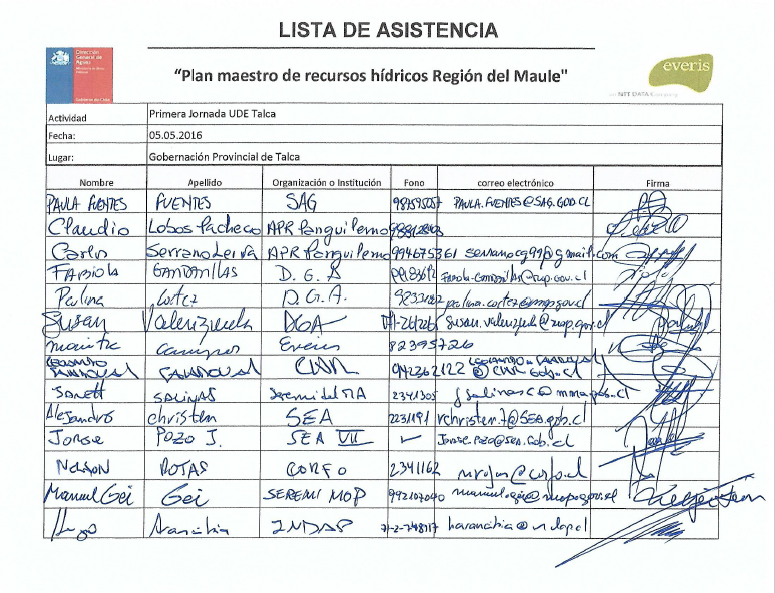 LISTA DE ASISTENCIA
Dirección General de Aguas
Gobierno de Chile
"Plan maestro de recursos hídricos Región del Maule"
everis
an NTT DATA Company
Actividad Primera Jornada UDE Talca
Fecha: 05.05.2016
Lugar: Gobernación Provincial de Talca
Nombre Apellido Organización o Institución Fono correo electrónico Firma
PAULA FUENTES FUENTES SAG PAULA.FUENTES@SAG.GOB.CL
Claudio Lobos Pacheco APR Panguilemo
Carlos Serrano Leiva APR Panguilemo 994675361 serranocg99@gmail.com
FABIOLA D.G.A
Paulina Cortez D.G.A. paulina.cortez@mop.gov.cl
Susan Valenzuela DGA susan.valenzuela@mop.gov.cl
Everis 82395726
SANDOVAL CNR
SALINAS Seremi del MA 2341305 jsalinasc@mma.gob.cl
Alejandro christen SEA 2231191
Jorge POZO J. SEA VII Jorge.pozo@sea.gob.cl
Nelson ROJAS CORFO 2341162 nrojas@corfo.cl
Manuel Gei Gei SEREMI MOP 992107040
Hugo Arancibia INDAP harancibia@indap.cl